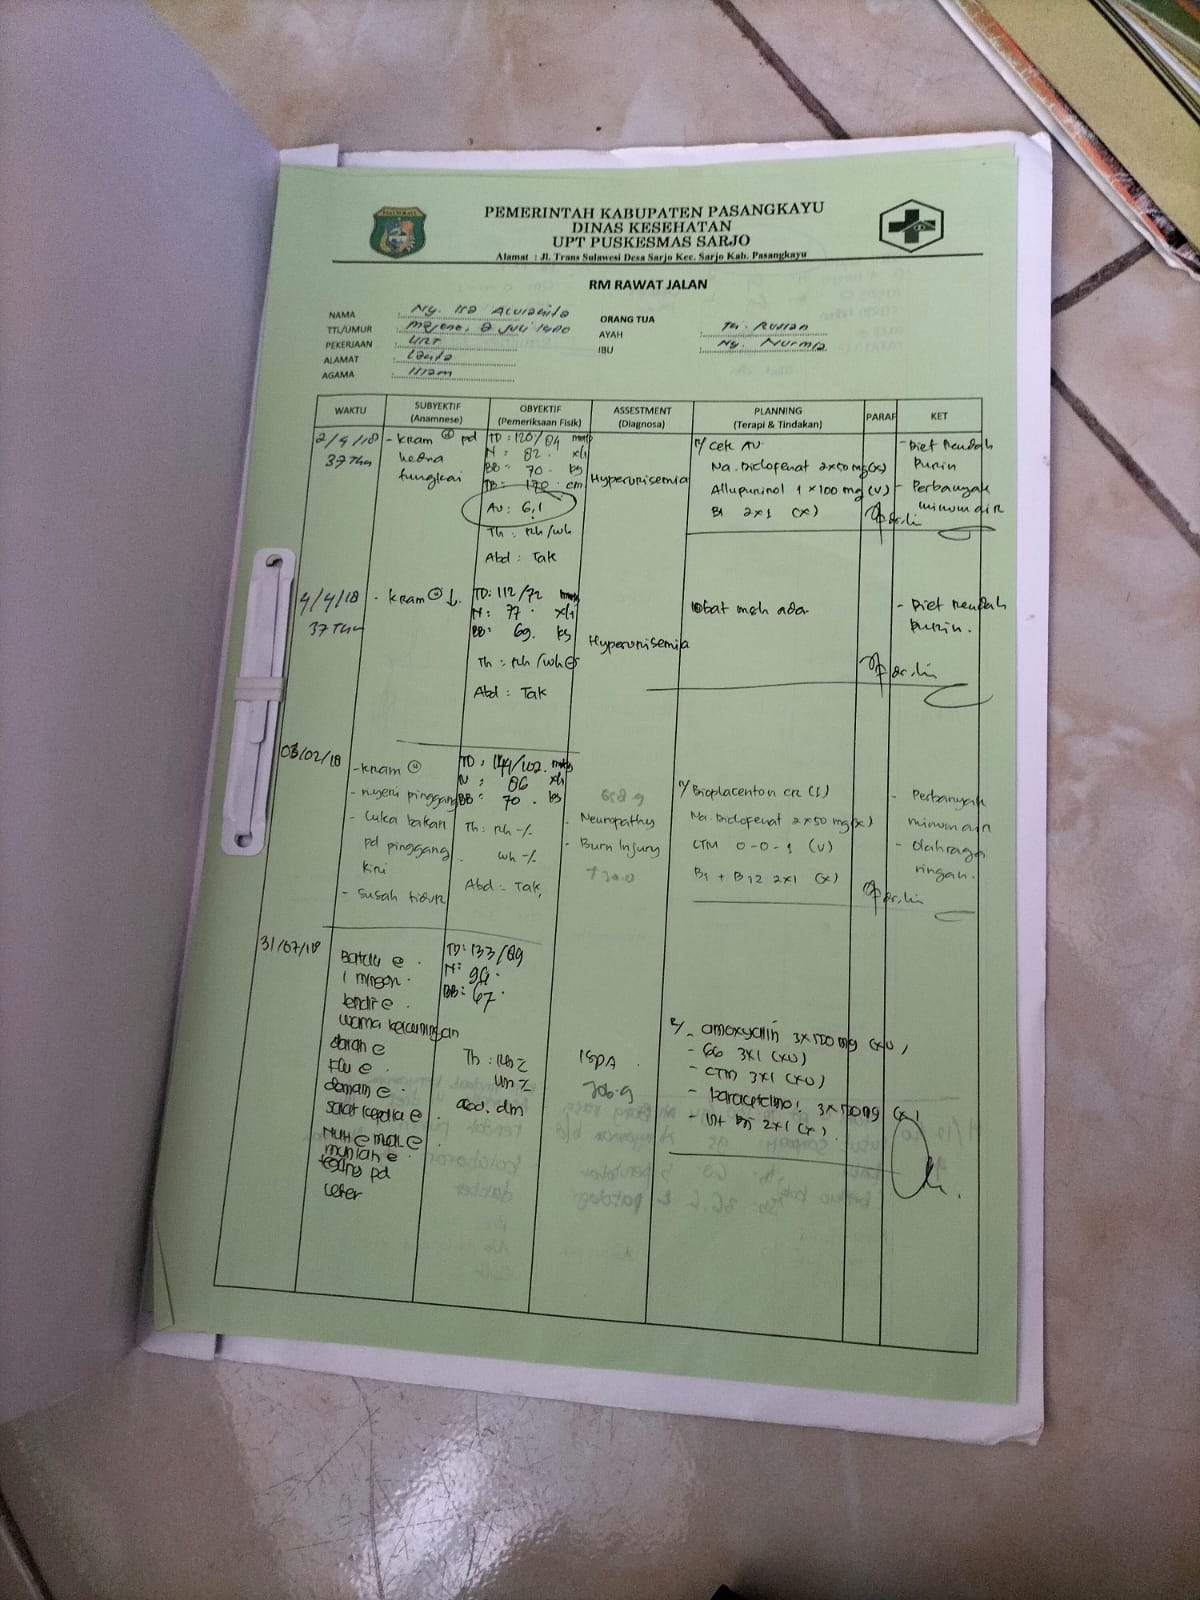 PEMERINTAH KABUPATEN PASANGKAYU
DINAS KESEHATAN
UPT PUSKESMAS SARJO
Alamat : Jl. Trans Sulawesi Desa Sarjo Kec. Sarjo Kab. Pasangkayu
RM RAWAT JALAN
NAMA : Ny.
TTL/UMUR : Majene, 2 Juli
PEKERJAAN : URT
ALAMAT :
AGAMA : Islam
ORANG TUA
AYAH : Tn. Ruslan
IBU : Ny. Nurmia
WAKTU
SUBYEKTIF
(Anamnese)
OBYEKTIF
(Pemeriksaan Fisik)
ASSESTMENT
(Diagnosa)
PLANNING
(Terapi & Tindakan)
PARAF
KET
2/4/18
37 Thn
- kram ⊕ pd
kedua
tungkai
TD : 120/84 mmHg
N : 82 x/i
BB : 70 kg
TB : 170 cm
AU : 6,1
Th : Rh/wh
Abd : Tak
Hyperurisemia
R/ Cek AU
Na. Diclofenat 2x50 mg (x)
Allupurinol 1x100 mg (V)
B1 2x1 (x)
- Diet Rendah
Purin
- Perbanyak
minum air
4/4/18
37 Thn
- kram ⊕ ↓
TD : 112/72 mmHg
N : 77 x/i
BB : 69 kg
Th : Rh/wh ⊖
Abd : Tak
Hyperurisemia
Obat msh ada
- Diet Rendah
Purin.
03/02/18
- kram ⊕
- nyeri pinggang
- Luka bakar
pd pinggang
kiri
- susah tidur
TD : 144/102 mmHg
N : 86 x/i
BB : 70 kg
Th : Rh -/-
wh -/-
Abd : Tak
- Neuropathy
- Burn Injury
R/ Bioplacenton cr (I)
Na. Diclofenat 2x50 mg (x)
CTM 0-0-1 (V)
B1 + B12 2x1 (x)
- Perbanyak
minum air
- Olahraga
ringan.
31/07/18
Batuk ⊕
1 minggu
lendir ⊕
warna kekuningan
darah ⊖
Flu ⊕
demam ⊕
sakit kepala ⊕
muntah ⊖
leher
TD : 133/89
N : 94
BB : 67
Th : Rh
wh
abd. dm
ISPA
R/ - amoxycilin 3x500 mg (XV)
- GG 3x1 (XV)
- CTM 3x1 (XV)
- Paracetamol 3x500mg (x)
2x1 (x)